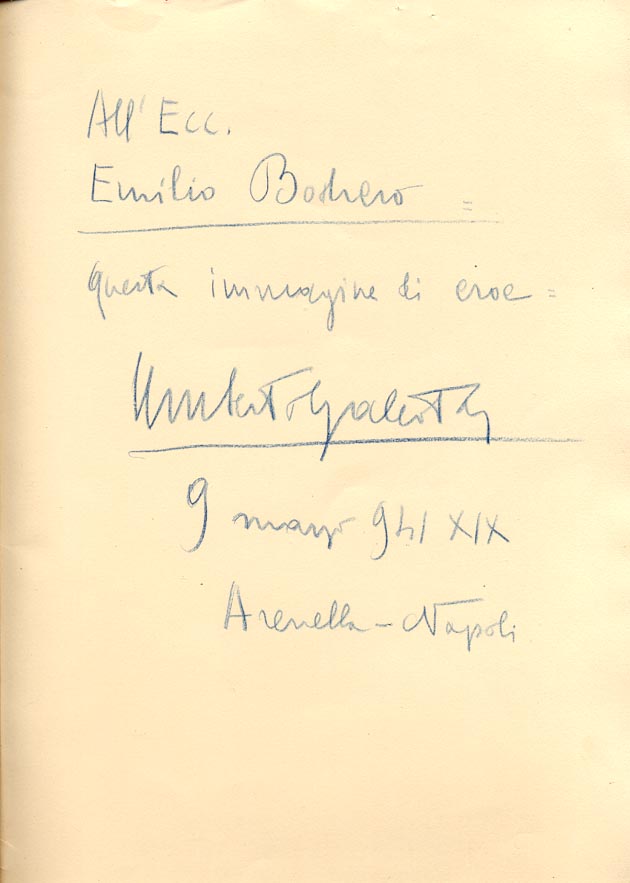 All' Ecc.
Emilio Bodrero =
questa immagine di eroe =
Umberto Galeota
9 marzo 941 XIX
Arenella - Napoli